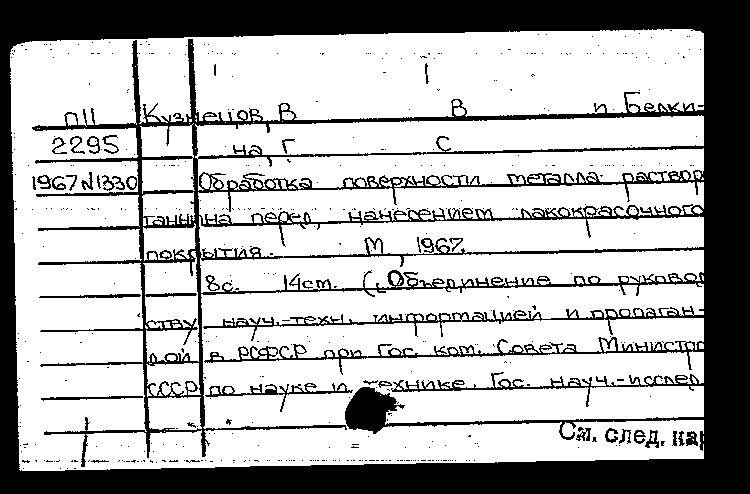 П11 Кузнецов, В В и Белки-
2295 на, Г С
1967 N1330 Обработка поверхности металла раствор
таннина перед нанесением лакокрасочного
покрытия. М, 1967.
8с. 14см. (Объединение по руковод
ству науч.-техн. информацией и пропаган-
дой в РСФСР при Гос. ком. Совета Министро
СССР по науке и технике. Гос. науч.-исслед.
См. след. кар